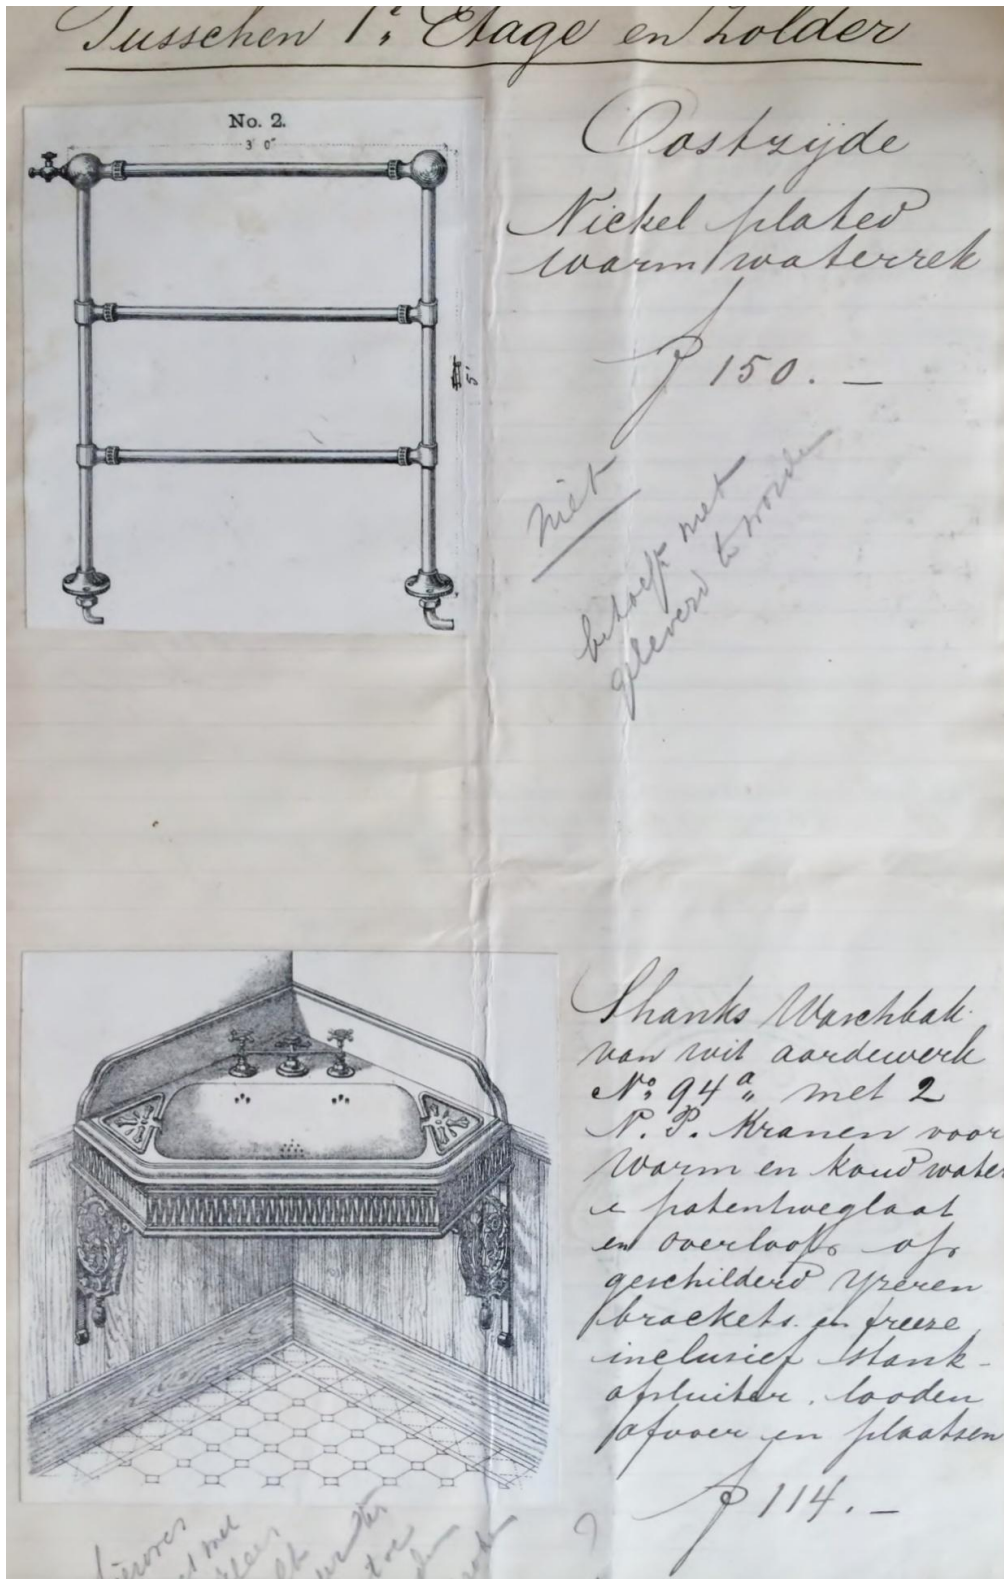 Tusschen 1e Etage en Zolder
No. 2.
3' 0"
5'
Oostzyde
Nickel plated
warm waterrek
f 150. —
niet
behoeft niet
geleverd te worden
Shanks Waschbak
van wit aardewerk
No. 94a met 2
N. P. Kranen voor
warm en koud water
patentweglaat
en overloop op
geschilderd Yzeren
brackets en freeze
inclusief stank-
afsluiter, looden
afvoer en plaatsen
f 114. —
?